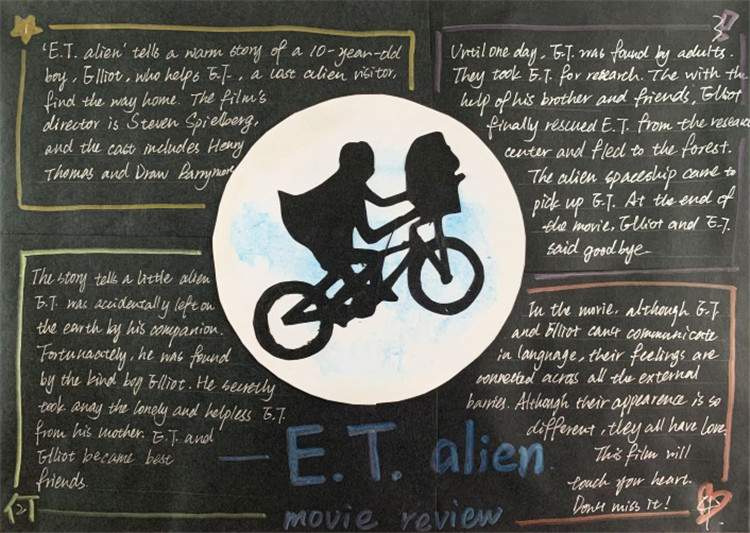 'E.T. alien' tells a warm story of a 10-year-old
boy, Elliot, who helps E.T., a lost alien visitor,
find the way home. The film's
director is Steven Spielberg,
and the cast includes Henry
Thomas and Draw Barrymore
The story tells a little alien
E.T. was accidentally left on
the earth by his companion.
Fortunately, he was found
by the kind boy Elliot. He secretly
took away the lonely and helpless E.T.
from his mother. E.T. and
Elliot became best
friends.
Until one day, E.T. was found by adults.
They took E.T. for research. The with the
help of his brother and friends, Elliot
finally rescued E.T. from the research
center and fled to the forest.
The alien spaceship came to
pick up E.T. At the end of
the movie, Elliot and E.T.
said goodbye.
In the movie, although E.T.
and Elliot can't communicate
in language, their feelings are
connected across all the external
barries. Although their appearence is so
different, they all have love.
This film will
touch your heart.
Don't miss it!
— E.T. alien
movie review